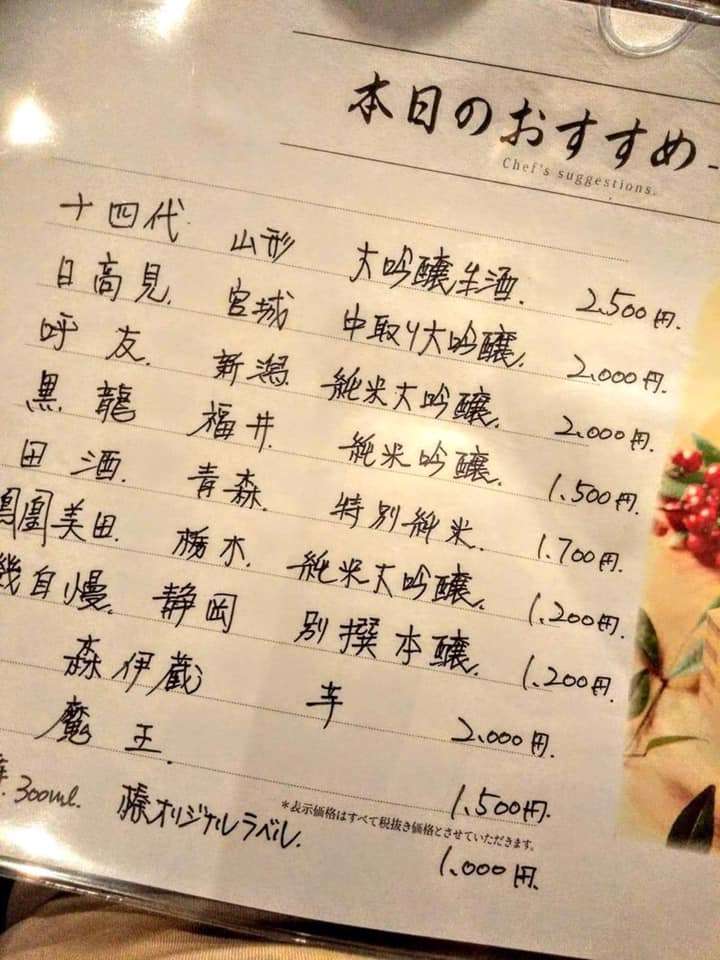 本日のおすすめ
Chef's suggestions.
十四代 山形 大吟醸生酒. 2.500円.
日高見. 宮城 中取り大吟醸. 2.000円.
呼友. 新潟. 純米大吟醸. 2.000円.
黒龍 福井 純米吟醸. 1.500円.
田酒. 青森. 特別純米. 1.700円.
鳳凰美田. 栃木. 純米大吟醸. 1.200円.
幾自慢. 静岡 別撰本醸. 1.200円.
森伊蔵 芋 2.000円.
魔王. 1.500円.
*表示価格はすべて税抜き価格とさせていただきます。
300ml. オリジナルラベル. 1.000円.